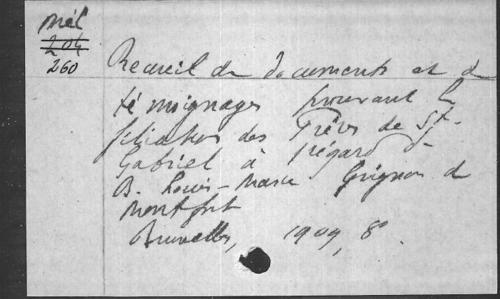 Mél
204
260
Recueil de documents et de
témoignages prouvant la
filiation des Frères de St-
Gabriel à l'égard d
B. Louis-Marie Grignon de
Montfort
Bruxelles, 1909, 8º.